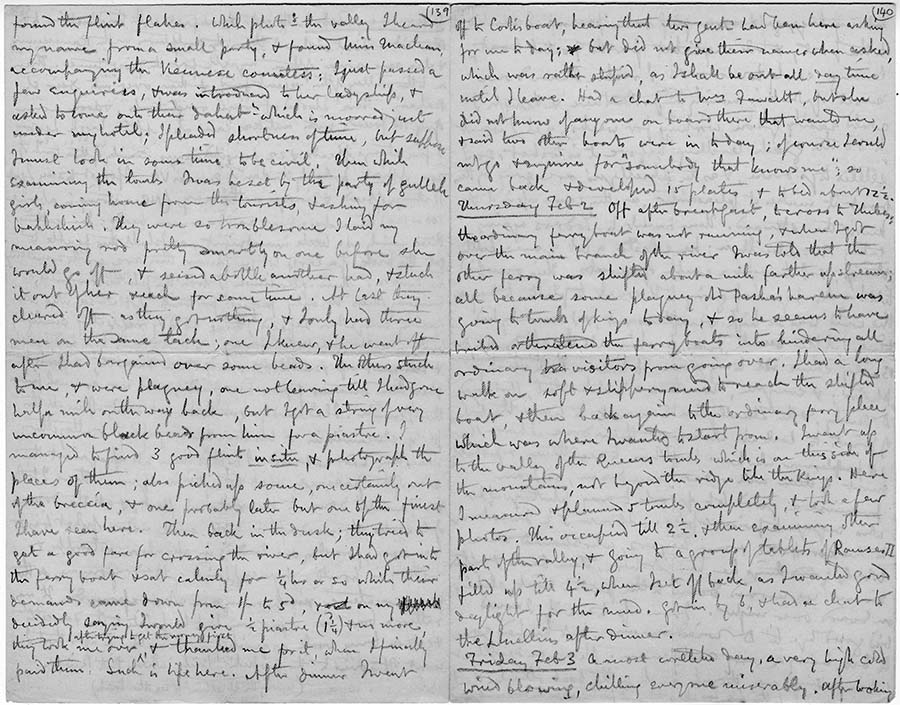 139
found the flint flakes. While photo^g the valley I heard
my name from a small party, & found Miss Maclean
accompanying the Viennese countess; I just passed a
few enquiries, & was introduced to her ladyship, &
asked to come onto their dahab^h which is moored just
under my hotel; I pleaded shortness of time, but suppose
I must look in some time to be civil. Then while
examining the tombs I was beset by the party of gulleh
girls, coming home from the tourists, & asking for
bakhshish. They were so troublesome I laid my
measuring rod pretty smartly on one before she
would go off, & seized a bottle another had, & stuck
it out of her reach for some time. At last they
cleared off as they got nothing, & I only had three
men on the same tack; one I knew, & he went off
after I had bargained over some beads. The others stuck
to me, & were plaguey, one not leaving till I had gone
half a mile on the way back, but I got a string of very
uncommon black beads from him for a piastre. I
managed to find 3 good flints in situ, & photograph the
places of them; also picked up some, one certainly out
of the breccia, & one probably later but one of the finest
I have seen here. Then back in the dusk; they tried to
get a good fare for crossing the river, but I had got into
the ferry boat & sat calmly for ¼ hr or so while their
demands came down from 1f to 5d, on my
decidedly saying I would give ½ piastre (1¼) & no more,
they took me over, & thanked me for it, when I finally
paid them. Such is life here. After dinner I went
140
off to Cook's boat, hearing that two gents had been here asking
for me today; but did not give their names when asked,
which was rather stupid, as I shall be out all day time
until I leave. Had a chat to Mrs Fawcett, but she
did not know of anyone on board there that wanted me,
& said two other boats were in today; of course I could
not go & enquire for "somebody that knows me"; so
came back & developed 15 plates & to bed about 12½.
Thursday Feb 2 Off after breakfast, to cross to Thebes,
the ordinary ferry boat was not running, & when I got
over the main branch of the river I was told that the
other ferry was shifted about a mile farther up stream;
all because some plaguey old Pasha's hareem was
going to tombs of kings today, & so he seems to have
bribed or threatened the ferry boats into hindering all
ordinary visitors from going over. I had a long
walk on soft & slippery mud to reach the shifted
boat, & then back again to the ordinary ferry place
which was where I wanted to start from. I went up
to the valley of the Queens tombs which is on this side of
the mountains, not beyond the ridge like the kings. Here
I measured & planned 5 tombs completely, & took a few
photos. This occupied till 2½, & then examining other
part of the valley, & going to a group of tablets of Ramses II
filled up till 4½, when I set off back, as I wanted good
daylight for the mud. Got in by 6, & had a chat to
the after dinner.
Friday Feb 3 A most wretched day, a very high cold
wind blowing, chilling everyone miserably. After looking